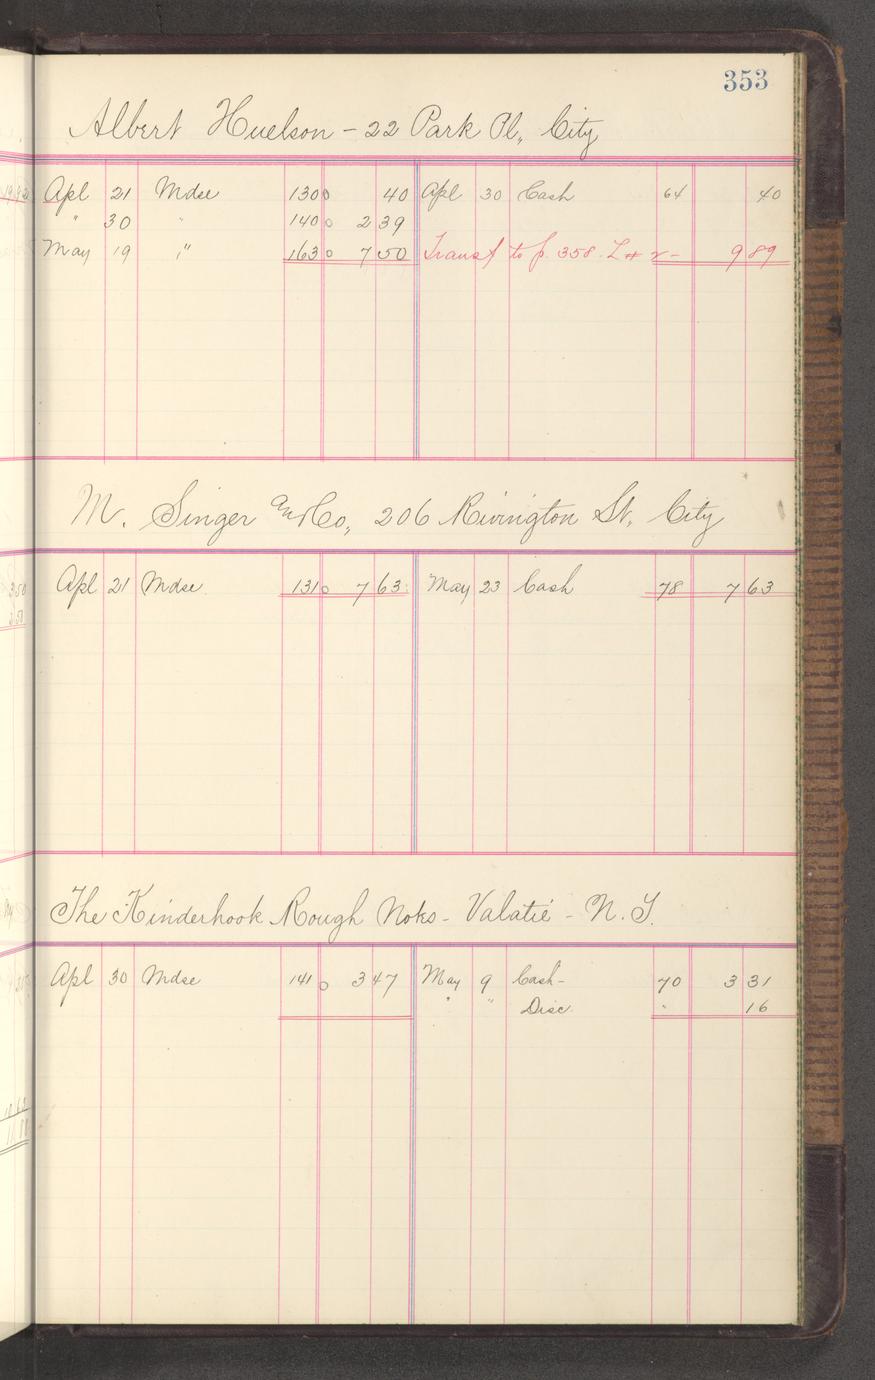 353
Albert Huelson - 22 Park Pl., City
Apl 21 Mdse 130 0 40 Apl 30 Cash 64 40
" 30 " 140 0 2 39
May 19 " 163 0 7 50 Transf to p. 358. L # 2 - 9 89
M. Singer and Co., 206 Rivington St. City
Apl 21 Mdse. 131 0 7 63 May 23 Cash 78 7 63
The Kinderhook Rough Notes - Valatie - N.Y.
Apl 30 Mdse 141 0 3 47 May 9 Cash - 70 3 31
" " Disc. " 16